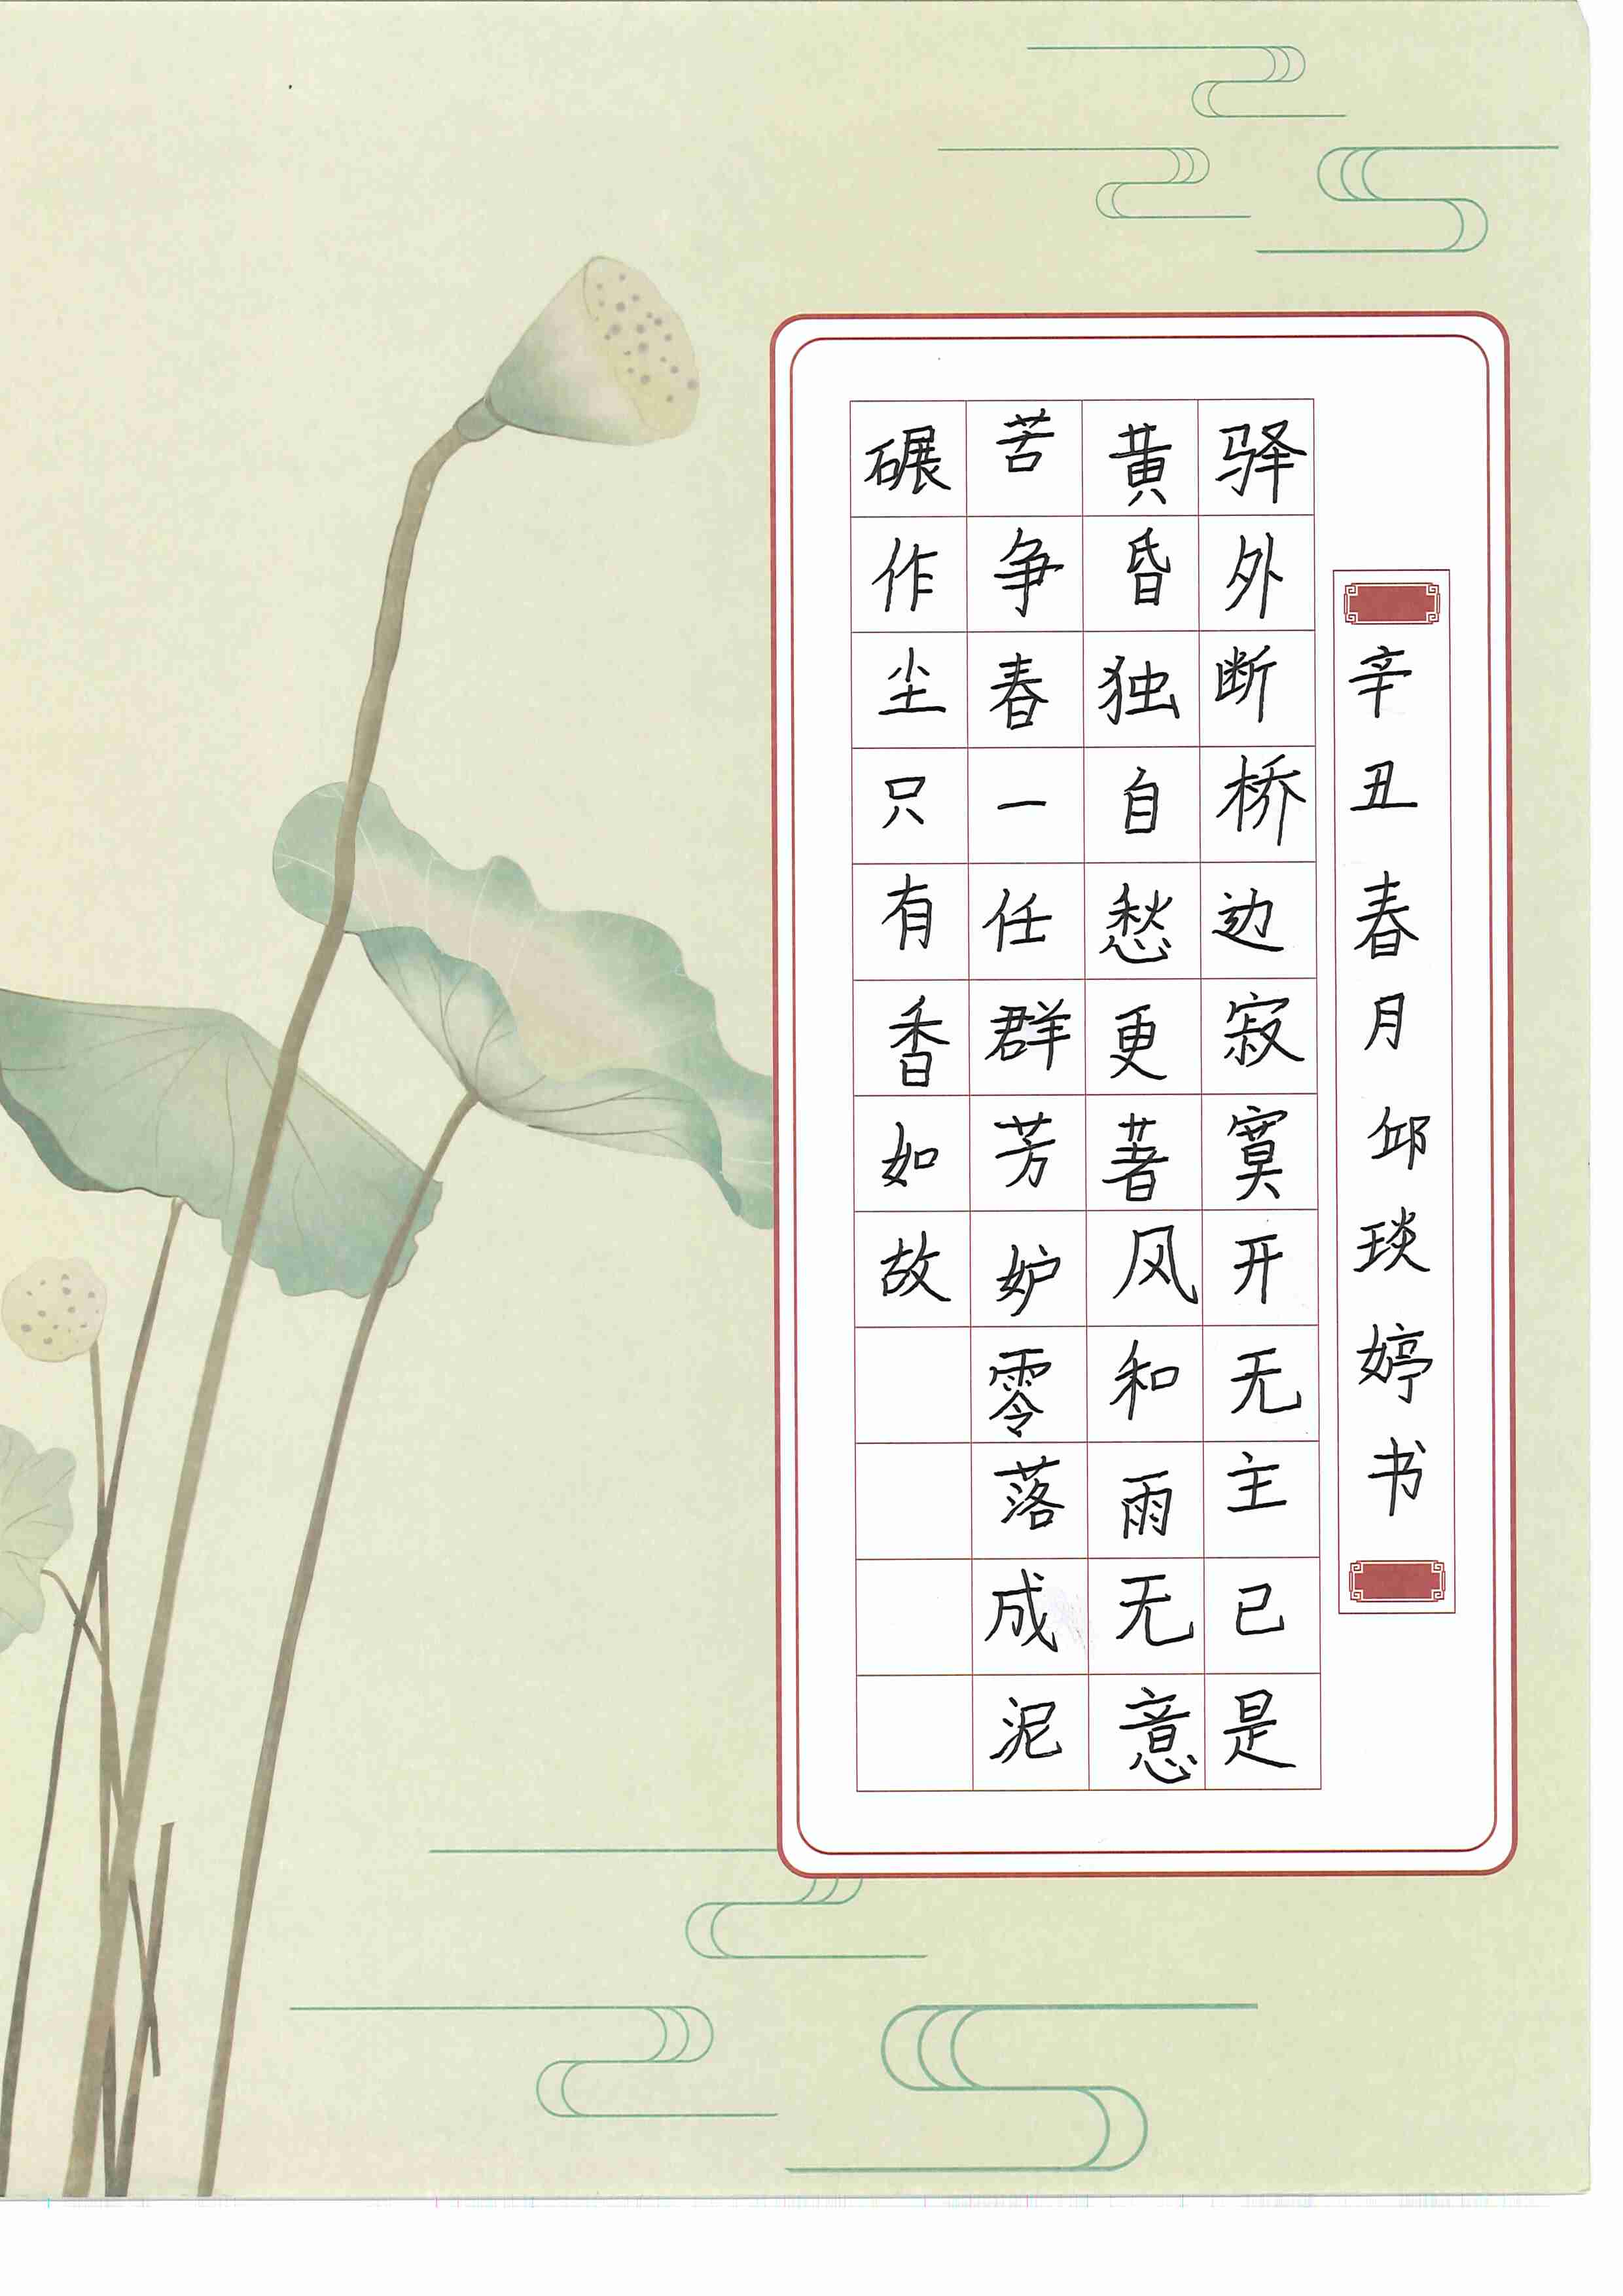 辛丑春月邱琰婷书
驿外断桥边寂寞开无主已是
黄昏独自愁更著风和雨无意
苦争春一任群芳妒零落成泥
碾作尘只有香如故